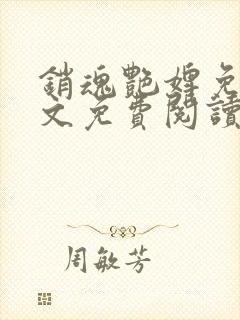 銷魂艷婢免
文免費閱讀
周敏芳